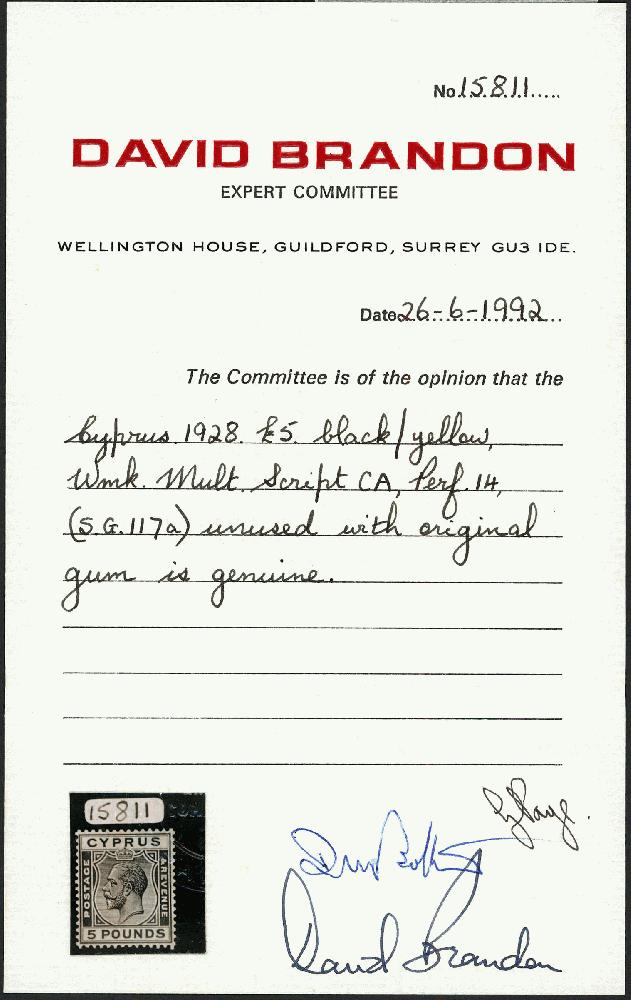 No.15811.....
DAVID BRANDON
EXPERT COMMITTEE
WELLINGTON HOUSE, GUILDFORD, SURREY GU3 IDE.
Date 26-6-1992...
The Committee is of the opinion that the
Cyprus 1928. £5. black/yellow,
Wmk. Mult. Script CA, Perf. 14,
(S.G.117a) unused with original
gum is genuine.
15811
CYPRUS
POSTAGE
REVENUE
5 POUNDS
David Brandon